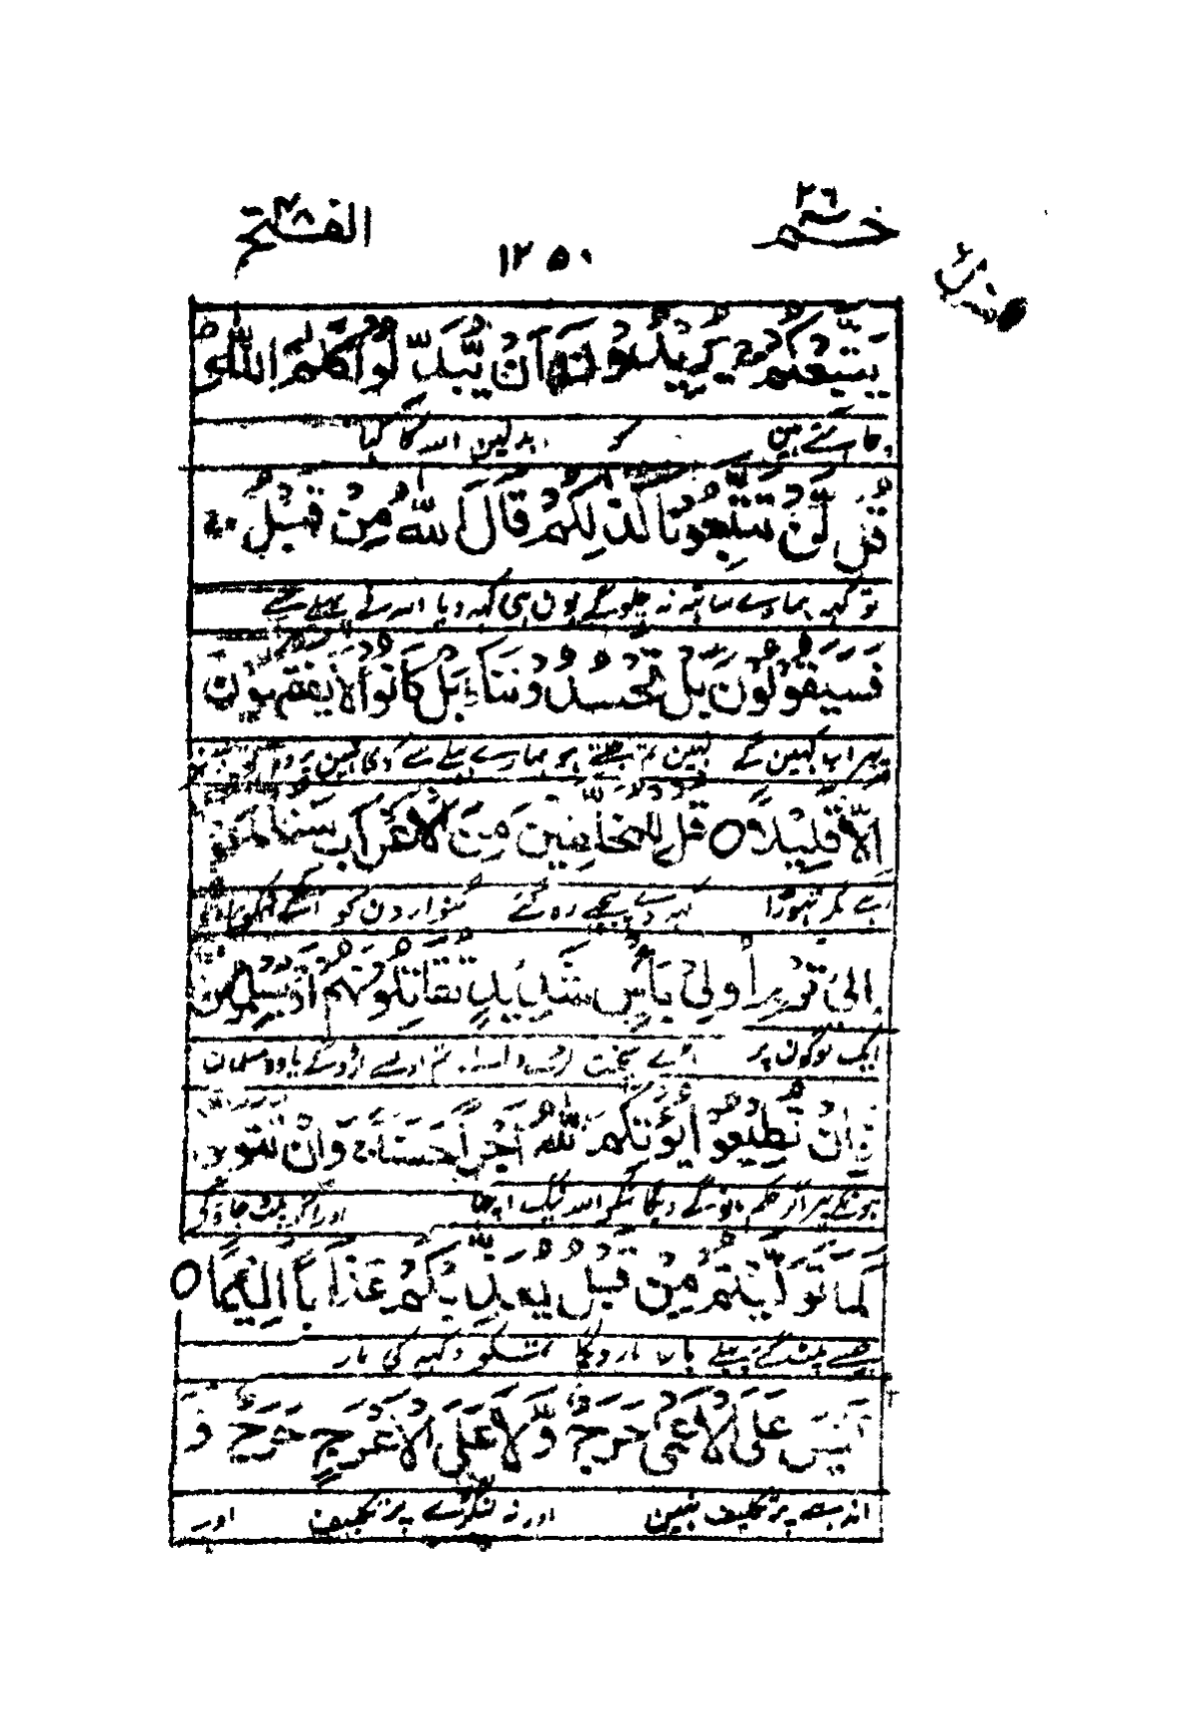 حٰم ٢٦
١٢٥٠
الفتح ٤٨
منزل ٦
نَتَّبِعْكُمْ ۚ يُرِيْدُوْنَ اَنْ يُّبَدِّلُوْا كَلٰمَ اللّٰهِ ؕ
بدلین اللہ کا کہا
قُلْ لَّنْ تَتَّبِعُوْنَا كَذٰلِكُمْ قَالَ اللّٰهُ مِنْ قَبْلُ ۚ
تو کہہ ہمارے ساتھ نہ چلوگے یون ہی کہہ دیا اللہ نے پہلے سے
فَسَيَقُوْلُوْنَ بَلْ تَحْسُدُوْنَنَا ؕ بَلْ كَانُوْا لَا يَفْقَهُوْنَ
پہر اب کہین گے نہین تم جلتے ہو ہمارے بہلے سے کوئی نہین پر وہ
اِلَّا قَلِيْلًا ○ قُلْ لِّلْمُخَلَّفِيْنَ مِنَ الْاَعْرَابِ سَتُدْعَوْنَ
مگر تہوڑا کہہ دے پیچہے رہ گئے گنوارون کو آگے تمکو
اِلٰى قَوْمٍ اُولِيْ بَاْسٍ شَدِيْدٍ تُقَاتِلُوْنَهُمْ اَوْ يُسْلِمُوْنَ
ایک لوگون پر بڑے سخت تم اون سے لڑوگے یا وہ مسلمان
فَاِنْ تُطِيْعُوْا يُؤْتِكُمُ اللّٰهُ اَجْرًا حَسَنًا ۚ وَاِنْ تَتَوَلَّوْا
ہونگے پہر اگر حکم مانوگے دیگا تمکو اللہ نیک اچہا اور اگر پلٹ جاؤگے
كَمَا تَوَلَّيْتُمْ مِّنْ قَبْلُ يُعَذِّبْكُمْ عَذَابًا اَلِيْمًا ○
جیسے پلٹ گئے پہلے بار مار دیگا تمکو دکہہ کی مار
لَيْسَ عَلَى الْاَعْمٰى حَرَجٌ وَّلَا عَلَى الْاَعْرَجِ حَرَجٌ وَّ
اندہے پر تکلیف نہین اور نہ لنگڑے پر تکلیف اور